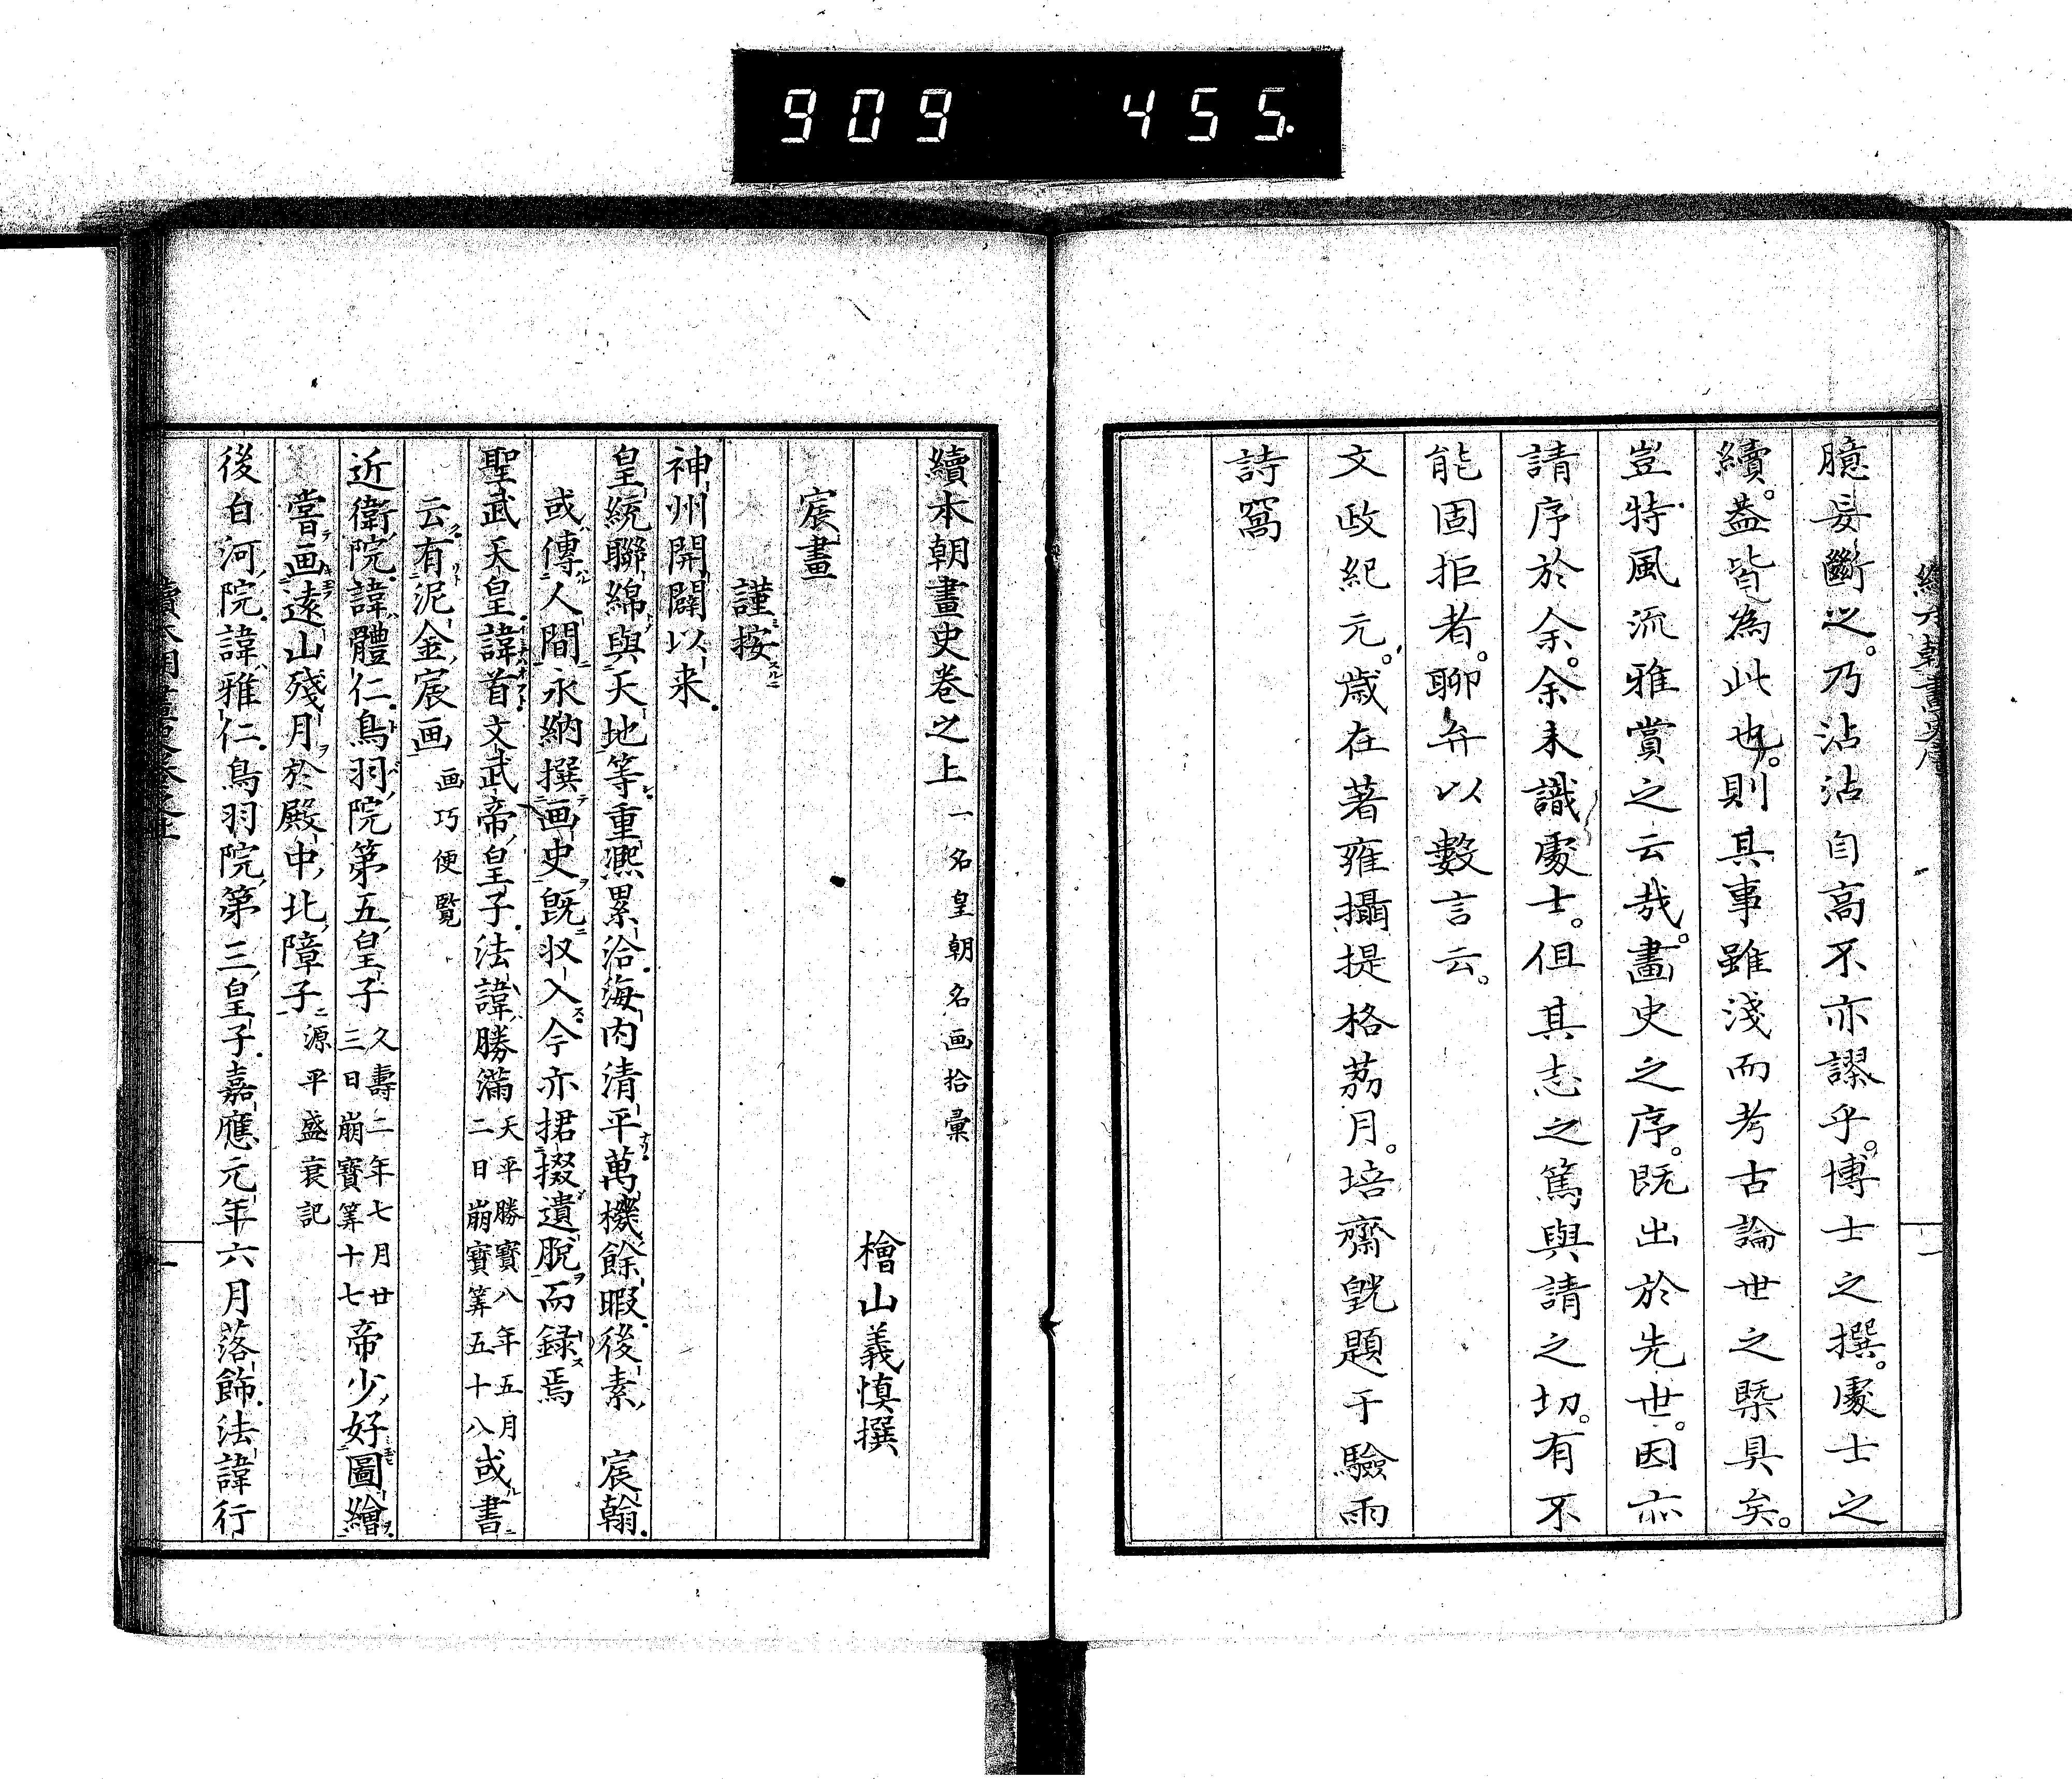 909 455
臆妄斷之。乃沾沾自高不亦謬乎。博士之撰。處士之
續。蓋皆為此也。則其事雖淺而考古論世之槩具矣。
豈特風流雅賞之云哉。畫史之序。既出於先世。因亦
請序於余。余未識處士。但其志之篤與請之切。有不
能固拒者。聊弁以數言云。
文政紀元。歲在著雍攝提格茘月。培齋題于驗雨
詩窩
續本朝畫史卷之上 一名皇朝名画拾彙
檜山義慎撰
宸畫
謹按
神州開闢以来
皇統聯綿與天地等重凞累洽海内清平萬機餘暇後素 宸翰
或傳人間永納撰画史既収入今亦捃掇遺脫而録焉
聖武天皇諱首文武帝皇子法諱勝滿 天平勝寳八年五月二日崩寳筭五十八 或書
云有泥金宸画 画巧便覧
近衛院諱體仁鳥羽院第五皇子 久壽二年七月廿三日崩寳筭十七 帝少好圖繪
嘗画遠山殘月於殿中北障子 源平盛衰記
後白河院諱雅仁鳥羽院第三皇子嘉應元年六月落飾法諱行